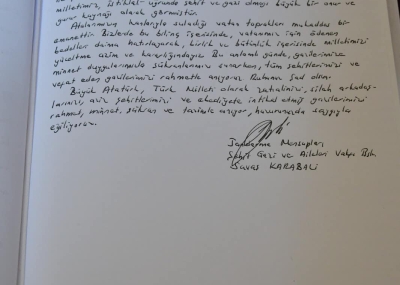 milletimiz, istiklali uğrunda şehit ve gazi olmayı büyük bir onur ve
gurur kaynağı olarak görmüştür.
Atalarımızın kanlarıyla suladığı vatan toprakları mukaddes bir
emanettir. Bizlerde bu bilinç içerisinde, vatanımız için ödenen
bedeller daima hatırlayarak, birlik ve bütünlük içerisinde milletimizi
yüceltme azim ve kararlılığındayız. Bu anlamlı günde, gazilerimize
minnet duygularımızla şükranlarımızı sunarken, tüm şehitlerimizi ve
vefat eden gazilerimizi rahmetle anıyoruz Ruhunuz Şad olsun.
Büyük Atatürk, Türk Milleti olarak zatialinizi, silah arkadaş-
larınızı, aziz şehitlerimizi ve ebediyete intikal etmiş gazilerimizi
rahmet, minnet, şükran ve tazimle anıyor, huzurunuzda saygıyla
eğiliyoruz.
Jandarma Mensupları
Şehit Gazi ve Aileleri Vakfı Bşk.
Savaş KARABALİ